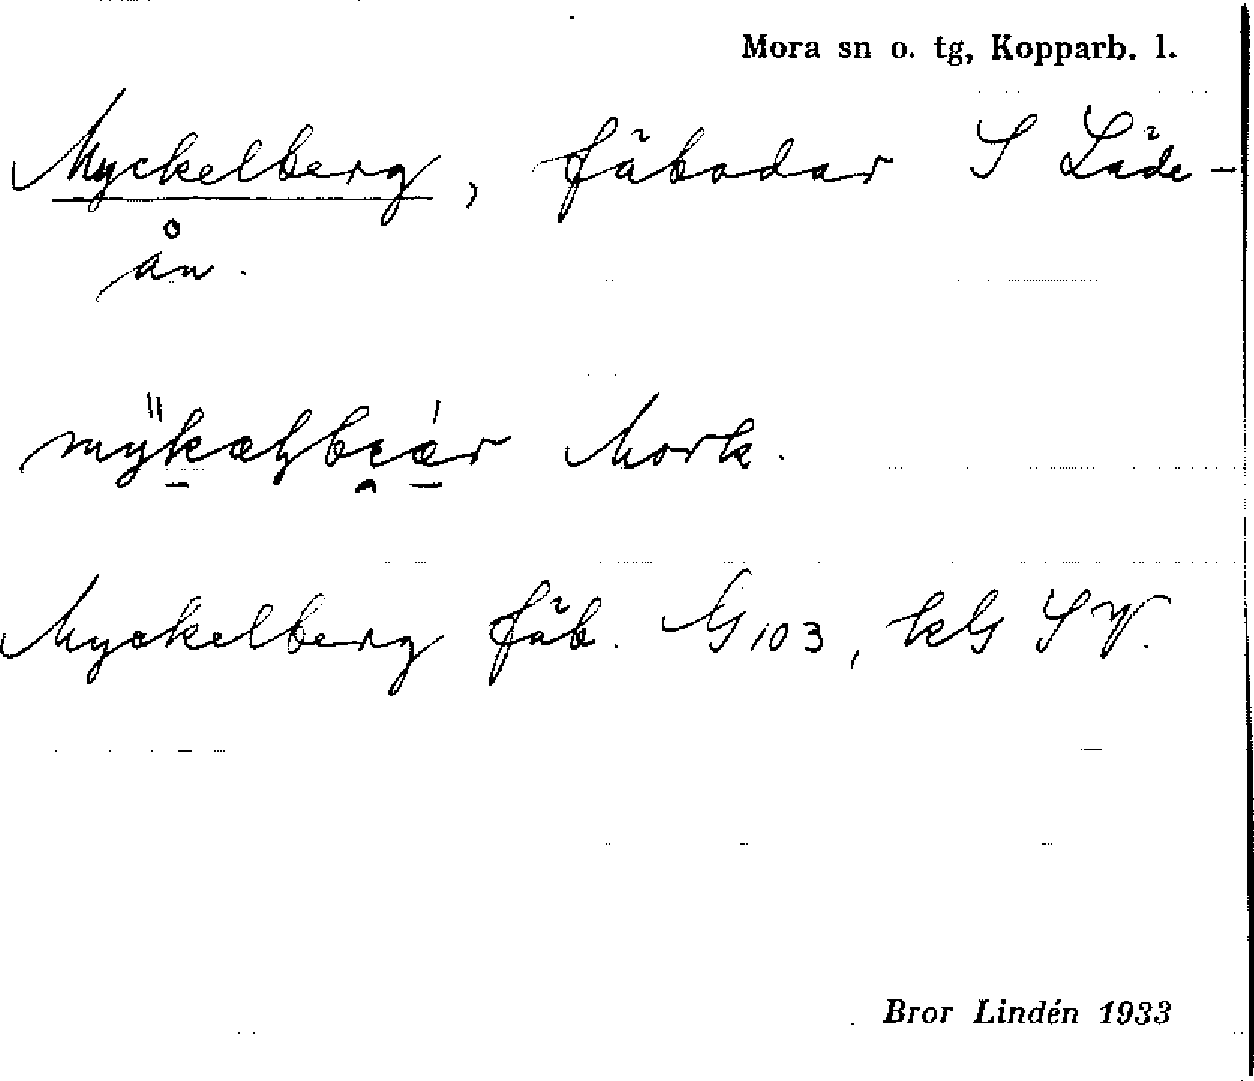 Mora sn o. tg, Kopparb. l.
Myckelberg, fäbodar S Läde-
ån.
Mork.
Myckelberg fäb. G 103, kG SV.
Bror Lindén 1933